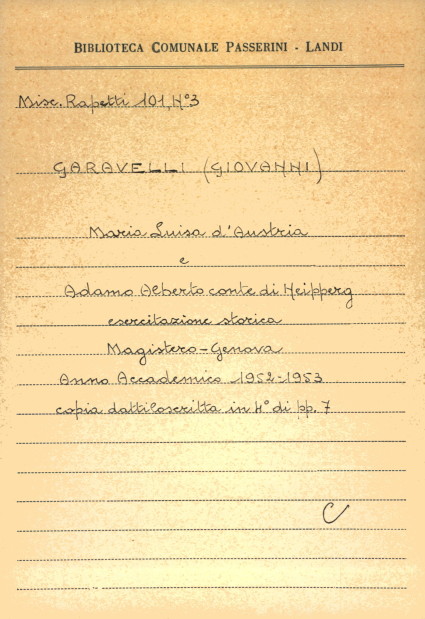 BIBLIOTECA COMUNALE PASSERINI - LANDI
Misc. Rapetti 101, N° 3
GARAVELLI (GIOVANNI)
Maria Luisa d'Austria
e
Adamo Alberto conte di Neipperg
esercitazione storica
Magistero - Genova
Anno Accademico 1952-1953
copia dattiloscritta in 4° di pp. 7
C